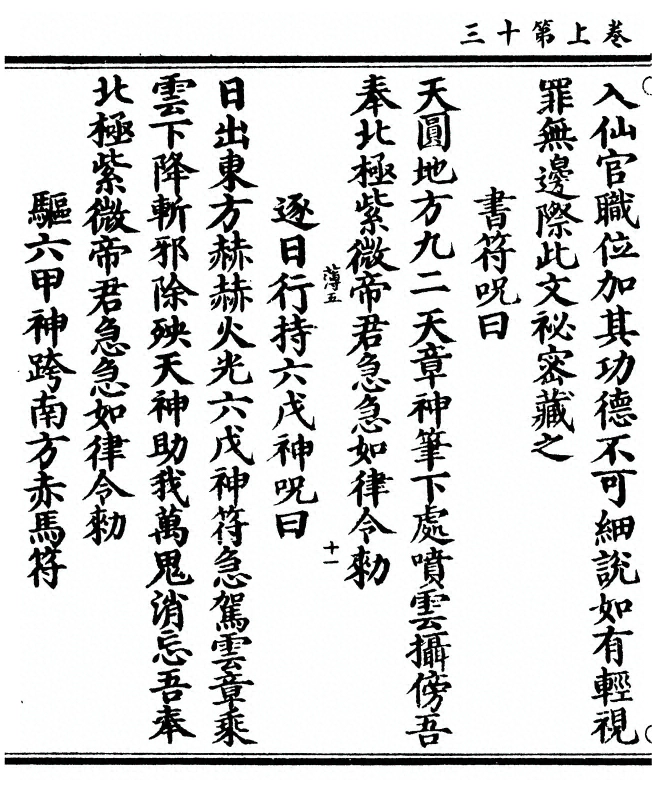 三十第上卷
入仙官職位加其功德不可細說如有輕視
罪無邊際此文祕密藏之
書符呪曰
天圓地方九二天章神筆下處噴雲攝傍吾
奉北極紫微帝君急急如律令勑
薄五
十一
逐日行持六戊神呪曰
日出東方赫赫火光六戊神符急駕雲章乘
雲下降斬邪除殃天神助我萬鬼消忘吾奉
北極紫微帝君急急如律令勑
驅六甲神跨南方赤馬符